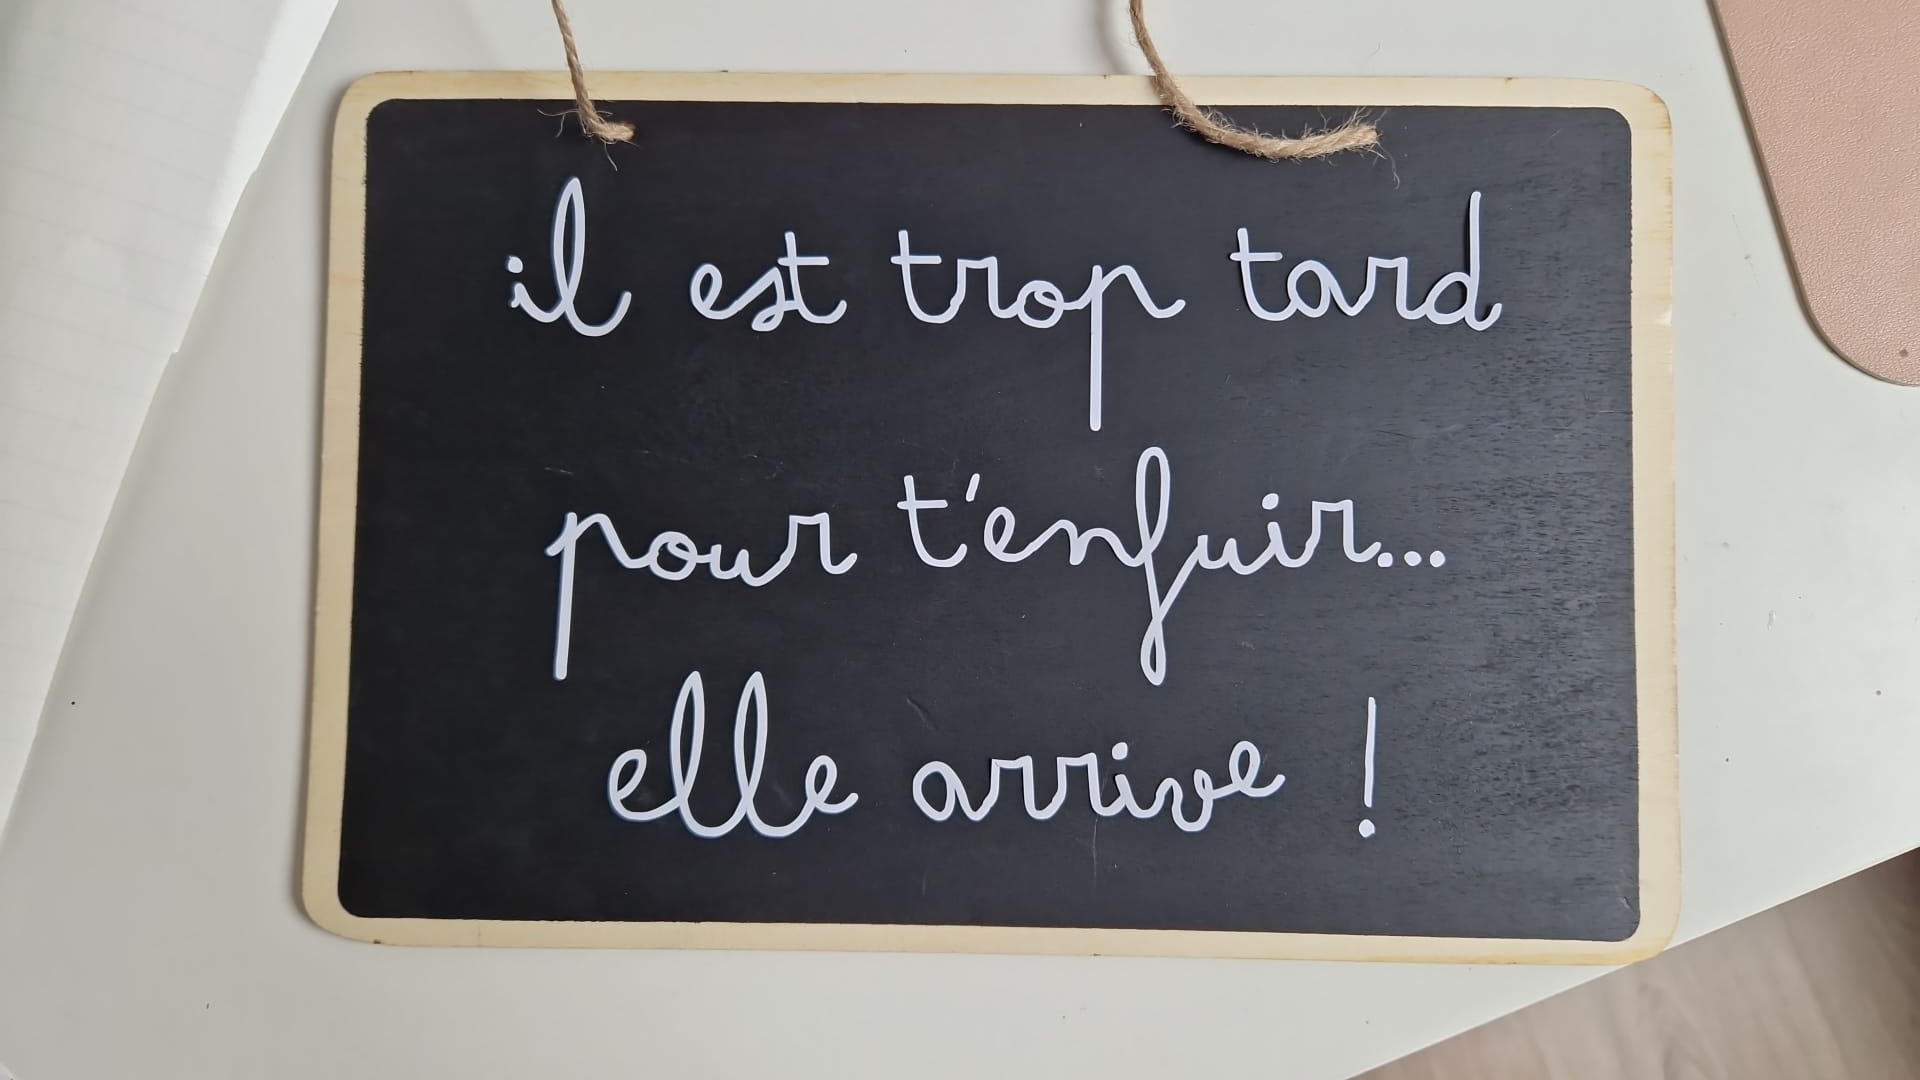 il est trop tard
pour t'enfuir...
elle arrive !